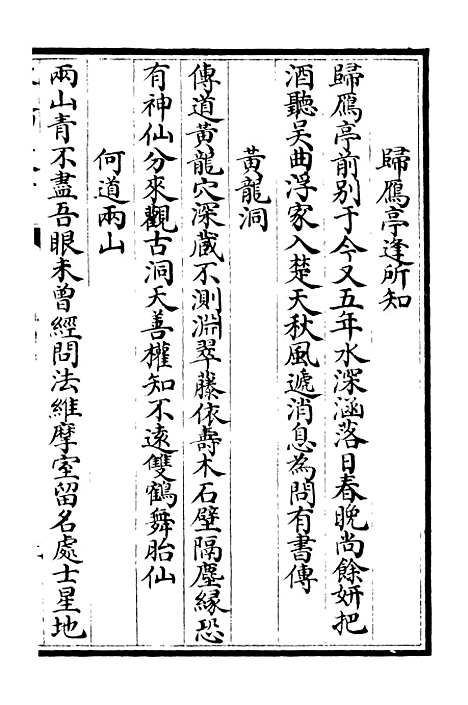 歸鴈亭逢所知
歸鴈亭前别于今又五年水深涵落日春晚尚餘妍把
酒聽吴曲浮家入楚天秋風遞消息為問有書傳
黄龍洞
傳道黄龍穴深藏不測淵翠藤依壽木石壁隔塵緣恐
有神仙分來觀古洞天善權知不遠雙鶴舞胎仙
何道兩山
兩山青不盡吾眼未曾經問法維摩室留名處士星地